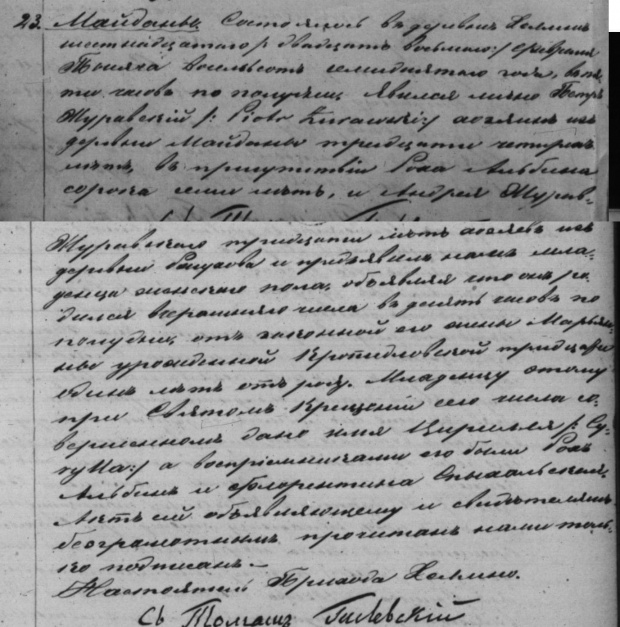 23. Майданы. Состоялось въ деревнѣ Хелмнѣ
шестнадцатаго /: двадцать восьмаго :/ февраля
тысяча восемьсотъ семидесятаго года, въ пя-
ти часовъ по полудни, явился лично Петръ
Журавскій /: Piotr Żurawski :/ изъ
деревни Майданы тридцати четырехъ
лѣтъ, въ присутствіи Роха Альбина
сорока семи лѣтъ, и Андрея Журав-
Журавскаго тридцати лѣтъ изъ
деревни и предъявилъ намъ мла-
денца женскаго пола, объявляя что онъ ро-
дился вчерашняго числа въ десять часовъ по
полудни, отъ законной его жены Марьян-
ны урожденной Кропидловской тридцати
одинъ лѣтъ отъ роду. Младенцу этому
при Святомъ Крещеніи сего числа со-
вершенномъ дано имя /:
:/ а воспріемниками его были Рохъ
Альбинъ и Флорентина
Актъ сей объявляющему и свидѣтелямъ
безграмотнымъ прочитанъ нами толь-
ко подписанъ. —
Настоятель Прихода Хелмно.
Кс. Томашъ